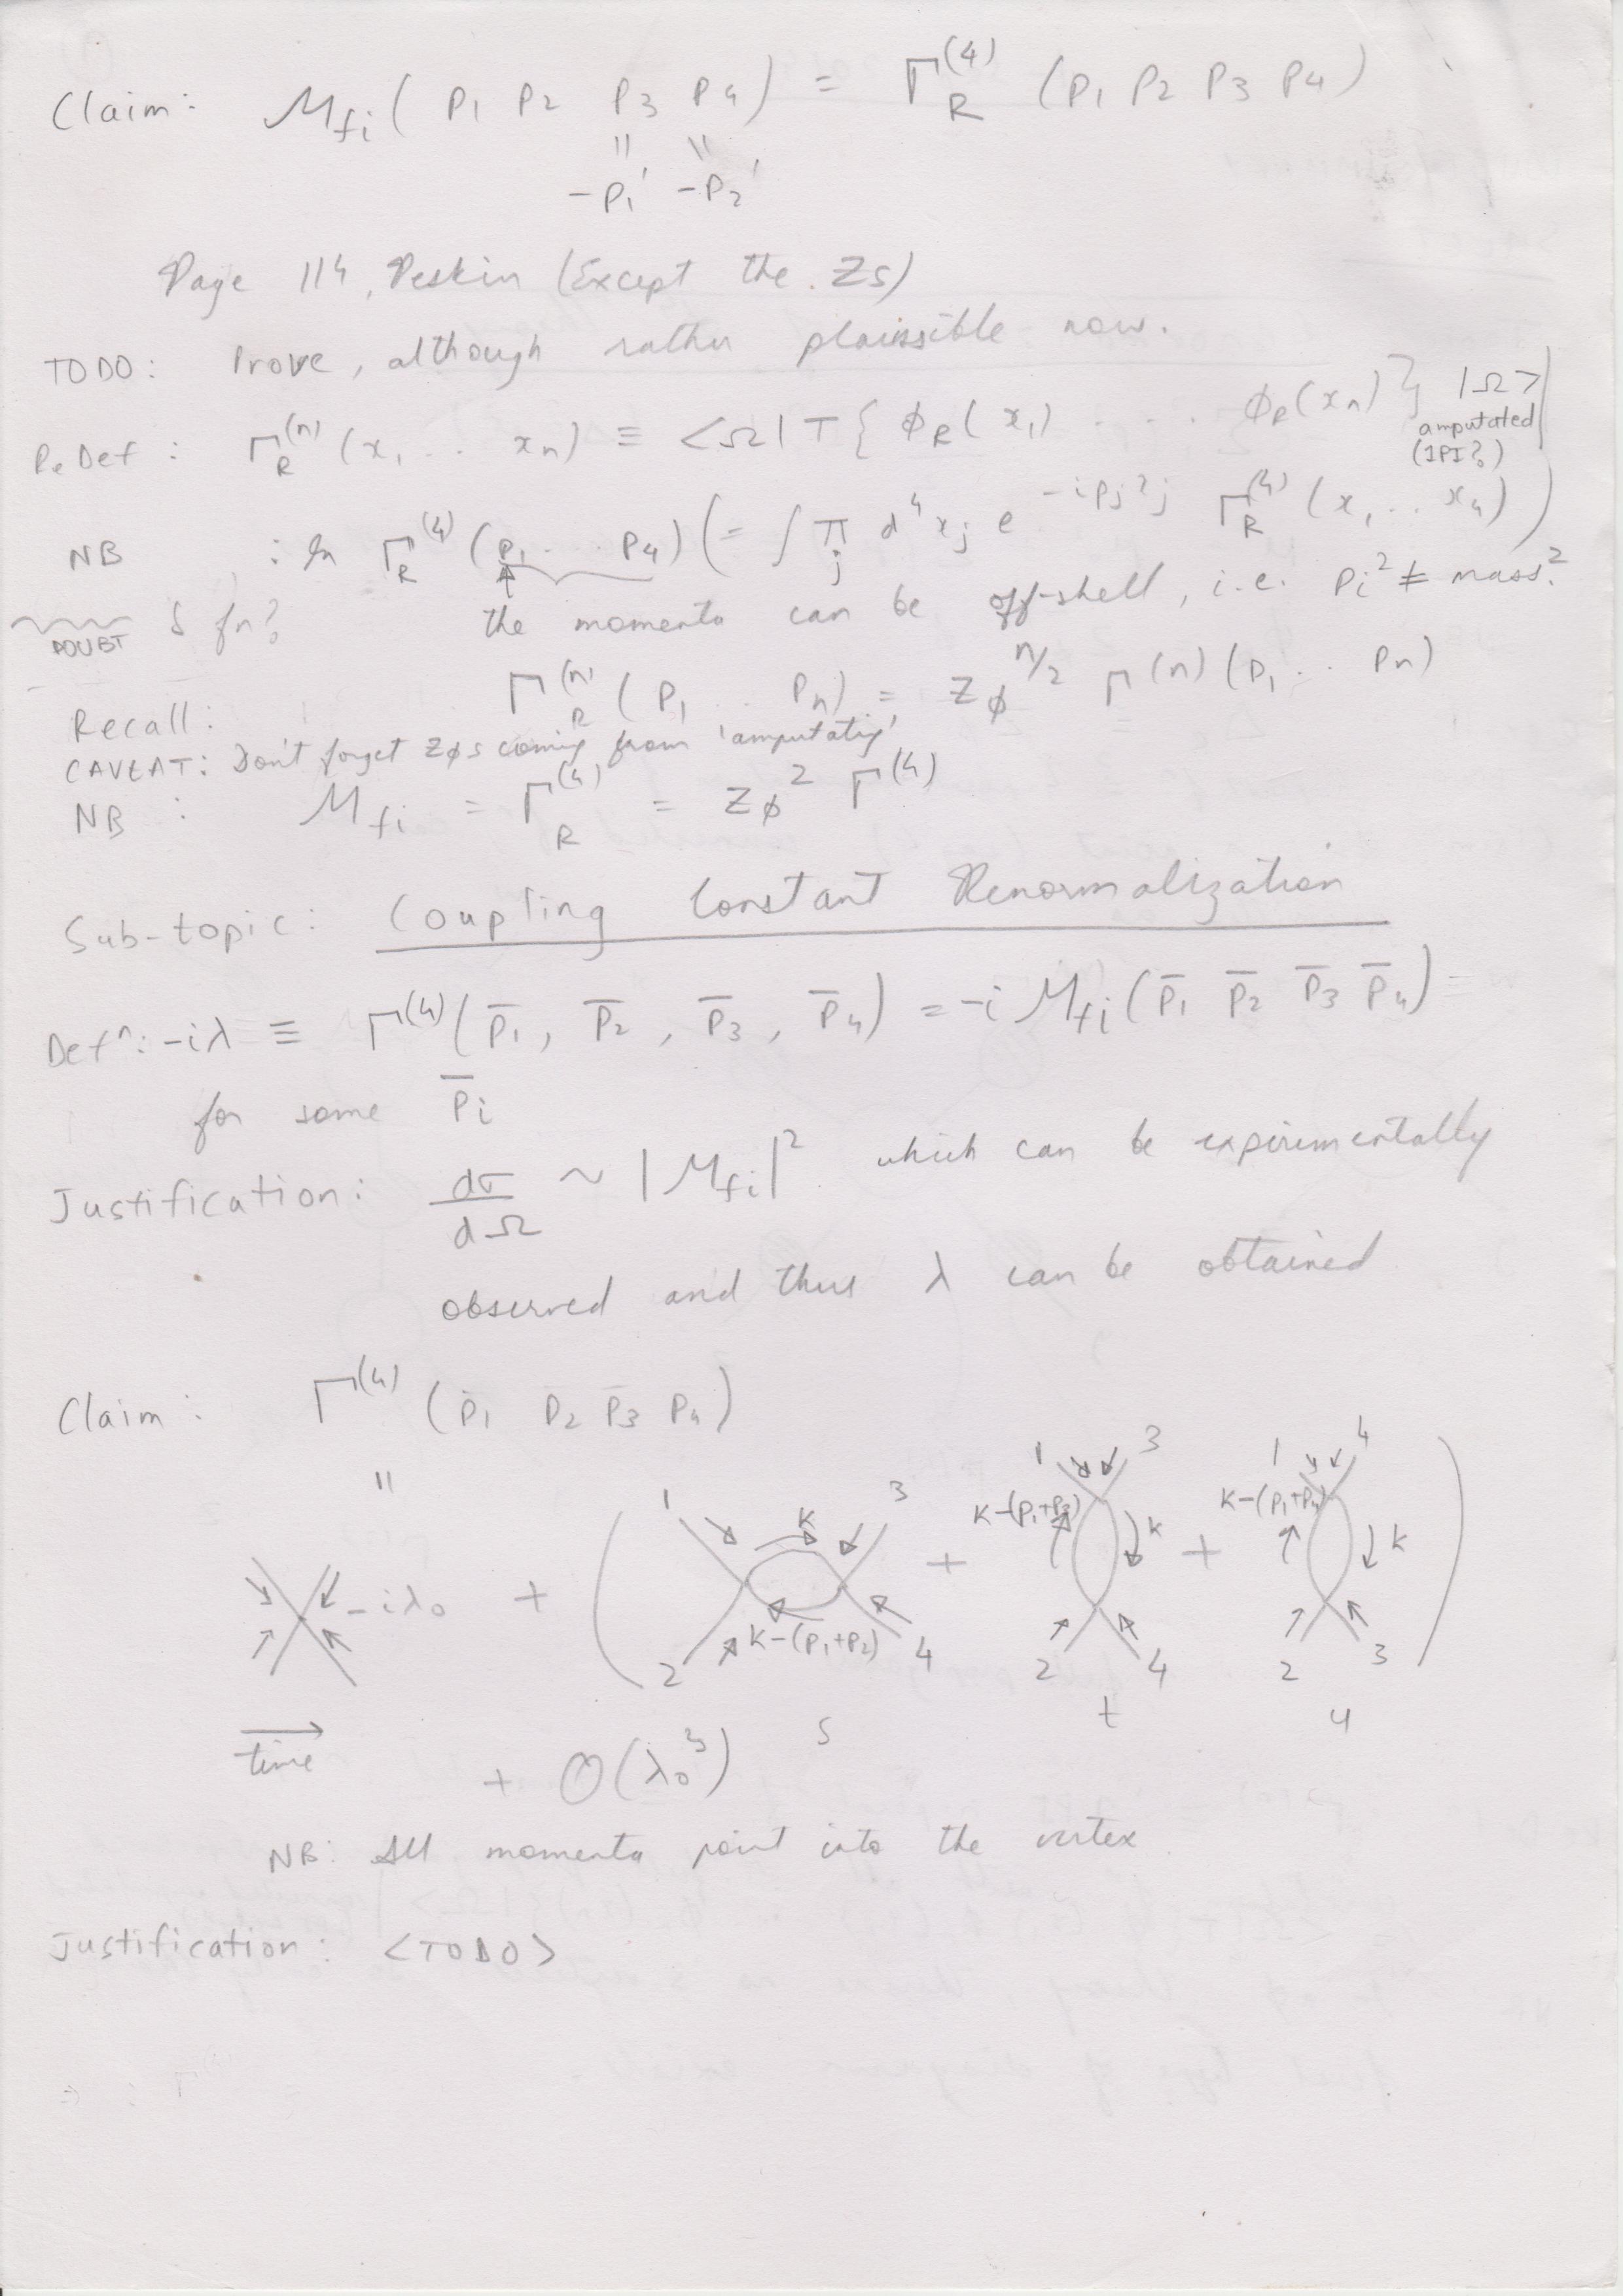 Claim: M_fi ( p1 p2 p3 p4 ) = Γ_R^(4) (p1 p2 p3 p4)
= =
-p1' -p2'
Page 114, Peskin (Except the Zs)
TODO: Prove, although rather plaissible now.
ReDef : Γ_R^(n) (x1 .. xn) ≡ <Ω|T{ φ_R(x1) . . . φ_R(xn)} |Ω>|
amputated
(1PI?)
NB : In Γ_R^(4) (p1 . . . p4) (= ∫ ∏_j d^4x_j e^{-ip_j x_j} Γ_R^(4) (x1 .. x4))
DOUBT δ fn? the momenta can be off-shell, i.e. pi² ≠ mass.²
Recall: Γ_R^(n) (p1 . . pn) = Z_φ^{n/2} Γ^(n) (p1 .. pn)
CAVEAT: Don't forget Zφs coming from 'amputatig'
NB : M_fi = Γ_R^(4) = Z_φ^2 Γ^(4)
Sub-topic: Coupling Constant Renormalization
Defⁿ: -iλ ≡ Γ^(4)(p̄1, p̄2, p̄3, p̄4) = -i M_fi (p̄1 p̄2 p̄3 p̄4)
for some p̄i
Justification: dσ/dΩ ~ |M_fi|² which can be expirimentally
observed and thus λ can be obtained
Claim: Γ^(4) (p1 p2 p3 p4)
=
-iλ0 + ( 1 2 3 4 K K-(p1+p2) + 1 3 K-(p1+p3) K 2 4 + 1 4 K-(p1+p4) K 2 3 )
s t u
time + O(λ0³)
NB: All momenta point into the vertex
Justification: <TODO>